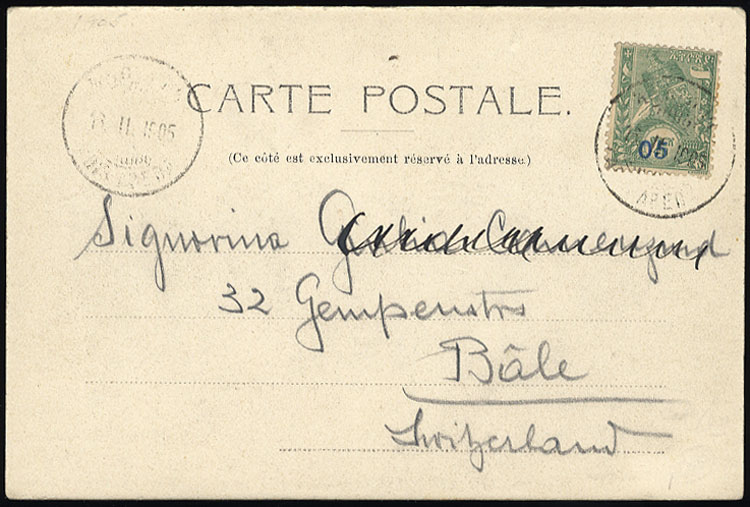 1905
CARTE POSTALE.
(Ce côté est exclusivement réservé à l'adresse.)
05
Signorina
32 Gempenstrs
Bâle
Switzerland